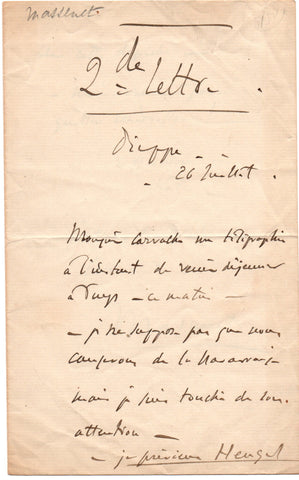 Massenet
2de Lettre.
Dieppe
26 Juillet.
Monsieur Carvalho me télégraphie
à l'instant de venir déjeuner
à Puys - ce matin -
- je ne suppose pas que nous
causerons de la Navarraise
mais je suis touché de son
attention -
- je préviens Heugel